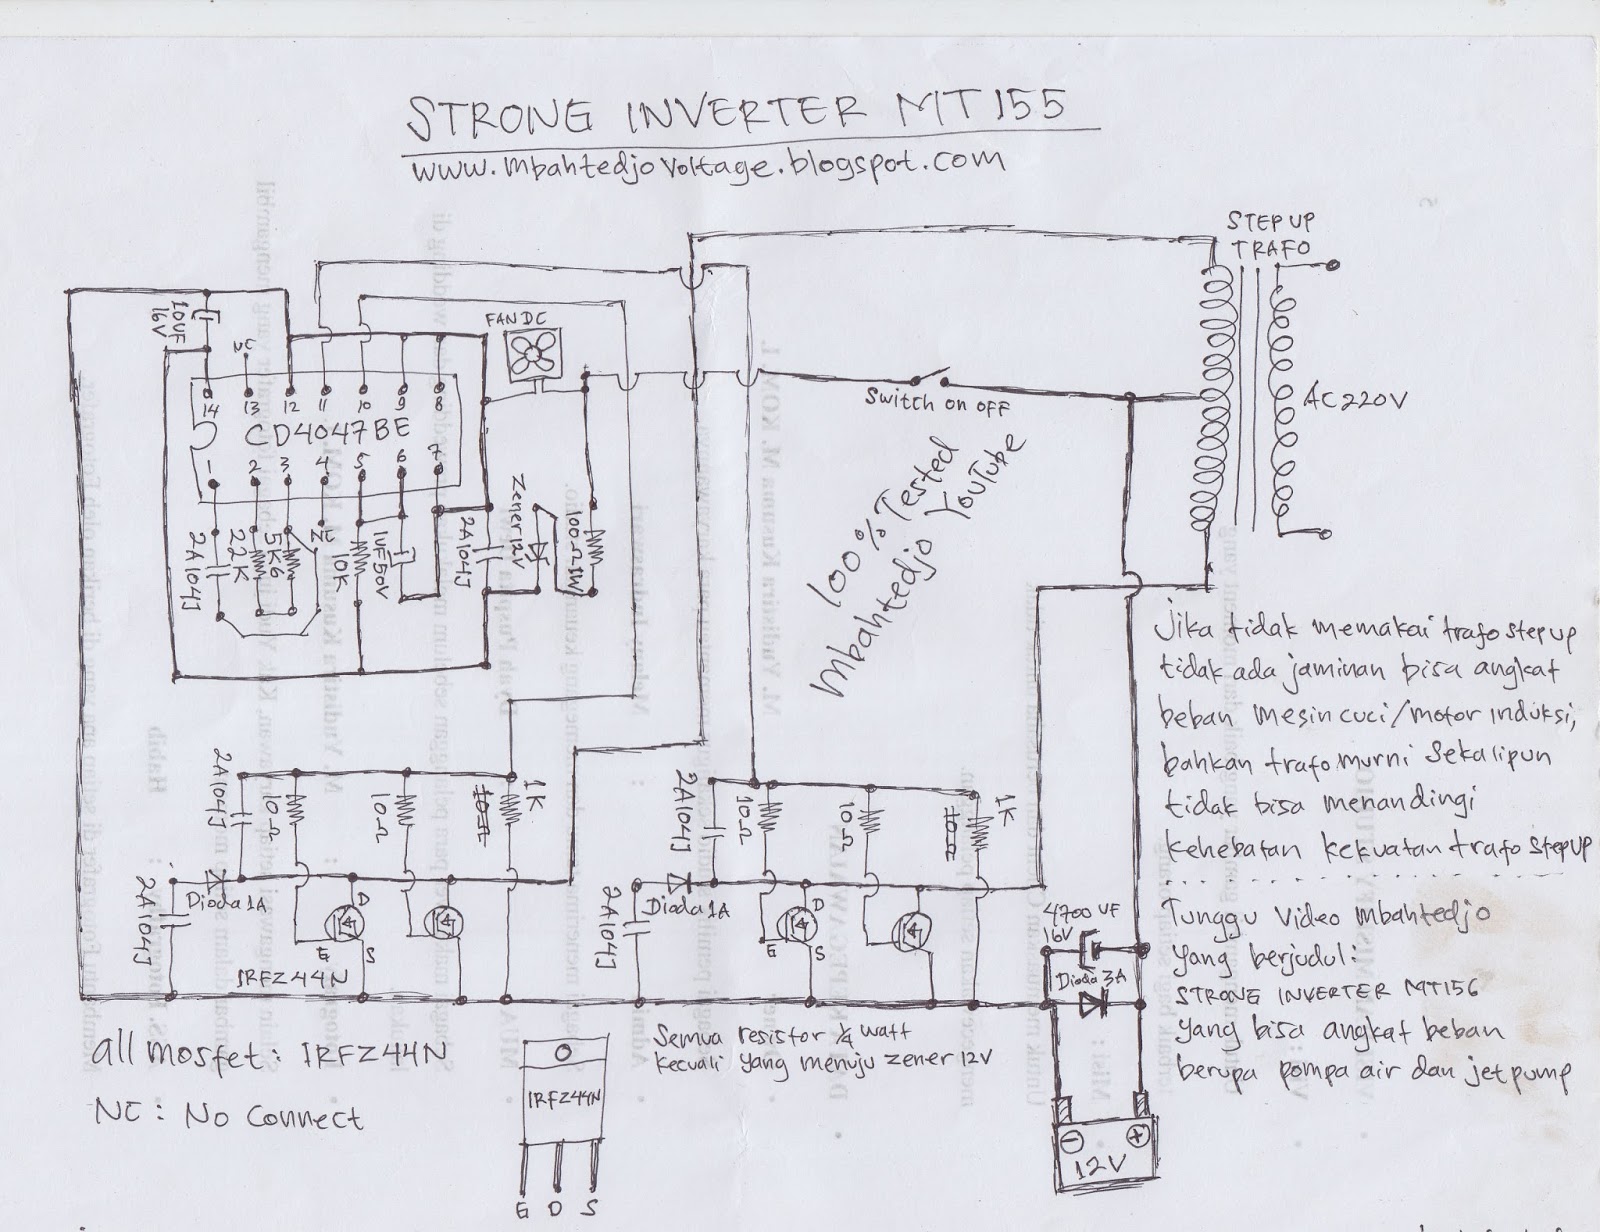 STRONG INVERTER MT155
www.mbahtedjovoltage.blogspot.com
STEP UP
TRAFO
AC220V
FAN DC
10UF
16V
NC
14
13
12
11
10
9
8
CD4047BE
1
2
3
4
5
6
7
2A104J
22K
5K6
NC
10K
1UF50V
2A104J
Zener12V
100Ω1W
Switch on OFF
100% Tested
Mbahtedjo YouTube
Jika tidak memakai trafo step up
tidak ada jaminan bisa angkat
beban mesin cuci/motor induksi,
bahkan trafo murni sekalipun
tidak bisa menandingi
kehebatan kekuatan trafo step up
Tunggu video mbahtedjo
yang berjudul:
STRONG INVERTER MT156
yang bisa angkat beban
berupa pompa air dan jetpump
2A104J
10Ω
10Ω
1K
2A104J
Dioda 1A
D
G
S
IRFZ44N
2A104J
10Ω
10Ω
1K
2A104J
Dioda 1A
D
G
S
4700UF
16V
Dioda 3A
12V
all mosfet: IRFZ44N
NC: No Connect
IRFZ44N
G D S
Semua resistor 1/4 watt
kecuali yang menuju zener 12V